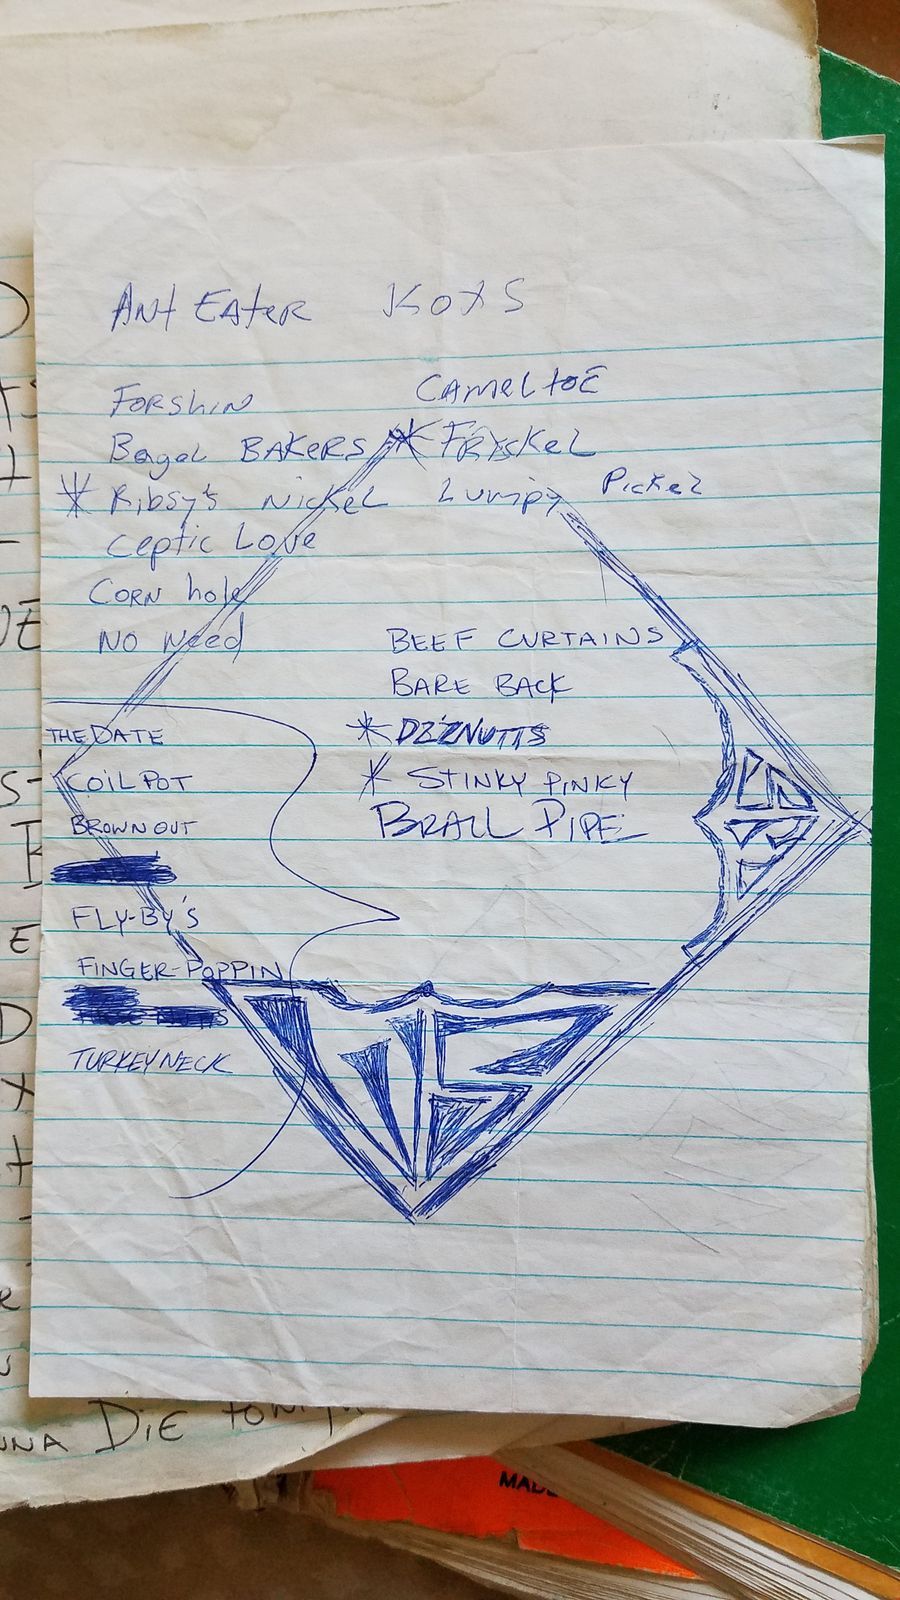 Ant Eater KOXS
Forshin
Camel toe
Bagel BAKERS * Friskel
* Ribsy's Nickel Lumpy Pickel
Ceptic Love
Corn hole
No Need
BEEF CURTAINS
BARE BACK
THE DATE
* DZ'ZNUTTS
COIL POT
* STINKY PINKY
BROWN OUT
BRALL PIPE
FLY-BY'S
FINGER-POPPIN
TURKEY NECK
DiE
MADE